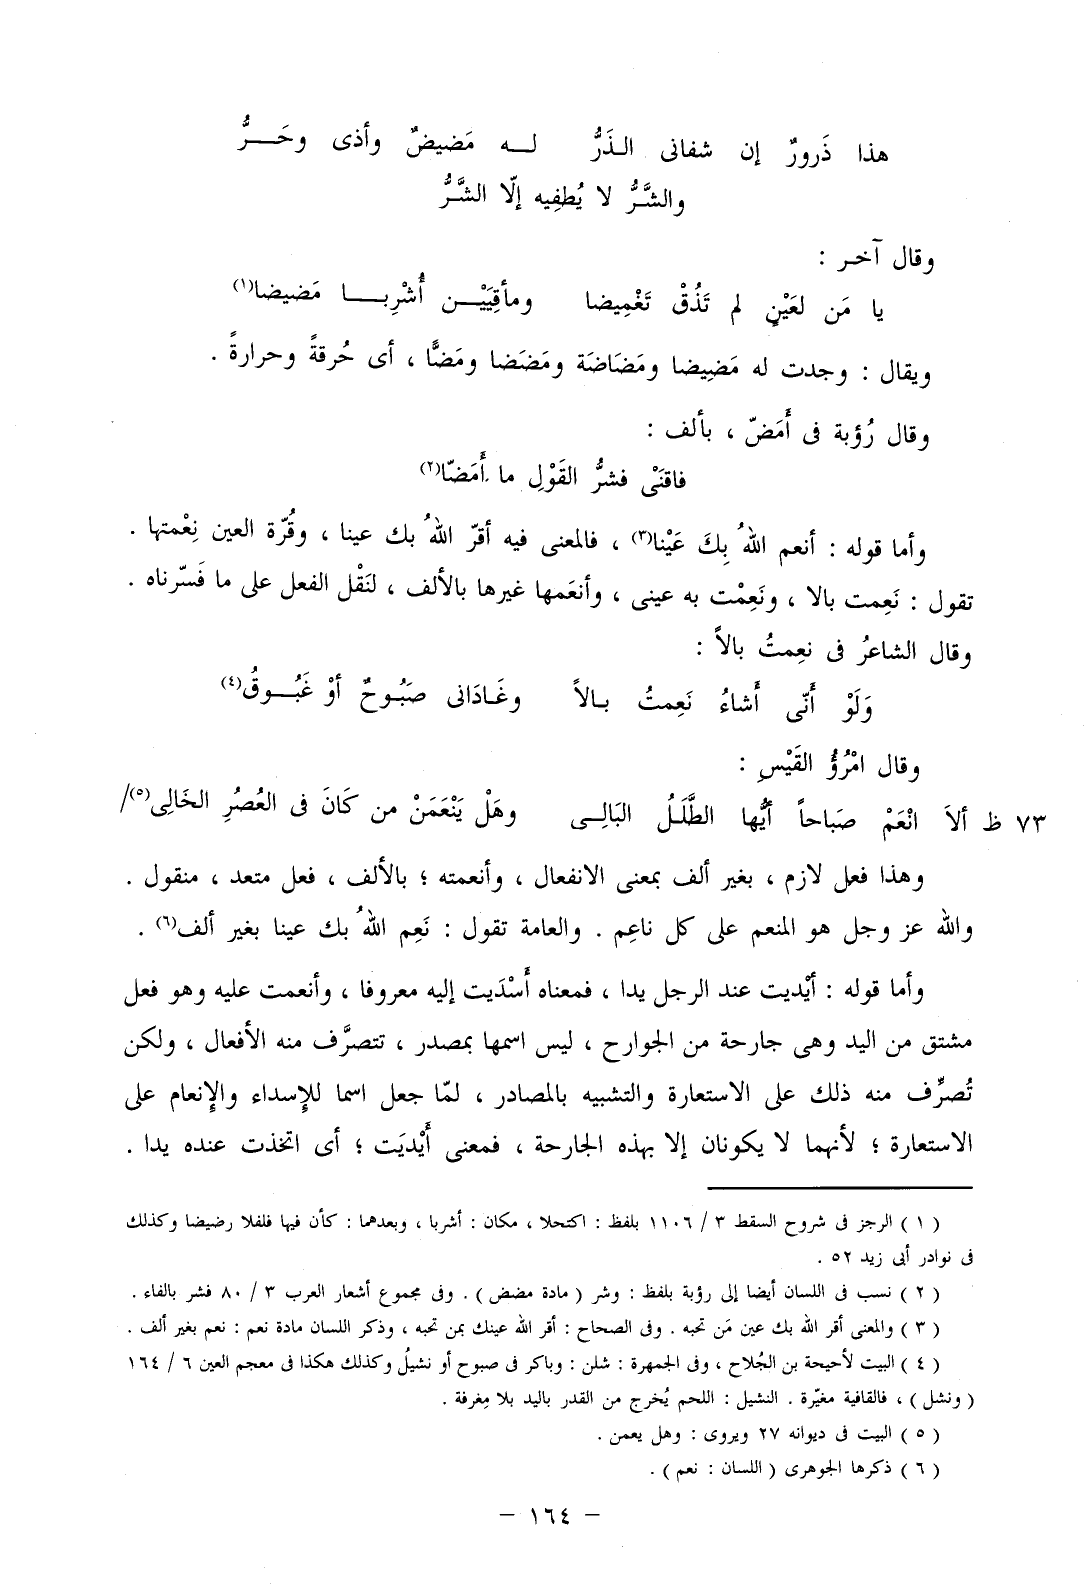 هذا ذَرورٌ إن شفانى الـذَرُّ لـــه مَضيضٌ وأذى وحَـــرُّ
والشَّرُّ لا يُطفِيه إلّا الشَّرُّ
وقال آخر :
يا مَن لعَيْنٍ لم تَذُقْ تَغْمِيضا ومأقِيَيْـــن أُشْرِبـــا مَضيضا(١)
ويقال : وجدت له مَضِيضا ومَضَاضَة ومَضَضا ومَضًّا ، أى حُرقةً وحرارةً .
وقال رُؤبة فى أَمَضّ ، بألف :
فاقنَىْ فشرُّ القَوْلِ ما أَمَضّا(٢)
وأما قوله : أنعم اللهُ بِكَ عَيْنا(٣) ، فالمعنى فيه أقرّ اللهُ بك عينا ، وقُرّة العين نِعْمتها .
تقول : نَعِمت بالا ، ونَعِمْت به عينى ، وأنعَمها غيرها بالألف ، لنَقْل الفعل على ما فَسّرناه .
وقال الشاعرُ فى نعِمتُ بالاً :
وَلَوْ أَنّى أَشاءُ نَعِمتُ بـالاً وغَـادَانى صَبُـوحٌ أوْ غَبُـــوقُ(٤)
وقال امْرُؤُ القَيْسِ :
٧٣ ظ ألاَ انْعَمْ صبَاحاً أيُّها الطَّلَـلُ البَالِـى وهَلْ يَنْعَمَنْ من كَانَ فى العُصُرِ الخَالِى(٥)/
وهذا فعل لازم ، بغير ألف بمعنى الانفعال ، وأنعمته ؛ بالألف ، فعل متعد ، منقول .
والله عز وجل هو المنعم على كل ناعِم . والعامة تقول : نَعِم اللهُ بك عينا بغير ألف(٦) .
وأما قوله : أيْديت عند الرجل يدا ، فمعناه أَسْدَيت إليه معروفا ، وأنعمت عليه وهو فعل
مشتق من اليد وهى جارحة من الجوارح ، ليس اسمها بمصدر ، تتصرَّف منه الأفعال ، ولكن
تُصرِّف منه ذلك على الاستعارة والتشبيه بالمصادر ، لمّا جعل اسما للإسداء والإنعام على
الاستعارة ؛ لأنهما لا يكونان إلا بهذه الجارحة ، فمعنى أَيْديَت ؛ أى اتخذت عنده يدا .
( ١ ) الرجز فى شروح السقط ٣ / ١١٠٦ بلفظ : اكتحلا ، مكان : أشربا ، وبعدهما : كأن فيها فلفلا رضيضا وكذلك
فى نوادر أبى زيد ٥٢ .
( ٢ ) نسب فى اللسان أيضا إلى رؤبة بلفظ : وشر ( مادة مضض ) . وفى مجموع أشعار العرب ٣ / ٨٠ فشر بالفاء .
( ٣ ) والمعنى أقر الله بك عين مَن تحبه . وفى الصحاح : أقر الله عينك بمن تحبه ، وذكر اللسان مادة نعم : نعم بغير ألف .
( ٤ ) البيت لأحيحة بن الجُلاح ، وفى الجمهرة : شلن : وباكر فى صبوح أو نشيلُ وكذلك هكذا فى معجم العين ٦ / ١٦٤
( ونشل ) ، فالقافية مغيّرة . النشيل : اللحم يُخرج من القدر باليد بلا مِغرفة .
( ٥ ) البيت فى ديوانه ٢٧ ويروى : وهل يعمن .
( ٦ ) ذكرها الجوهرى ( اللسان : نعم ) .
– ١٦٤ –